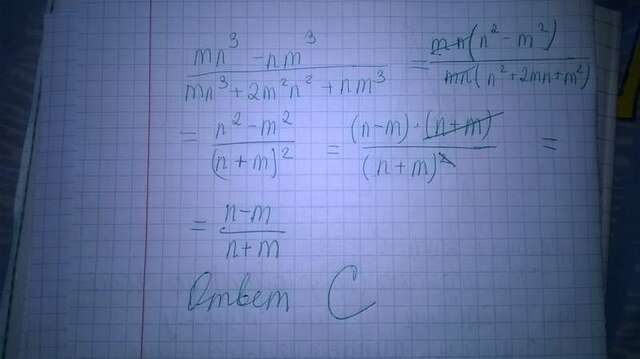 (mn³ - nm³)/(mn³ + 2m²n² + nm³) = mn(n² - m²)/mn(n² + 2mn + m²)
= (n² - m²)/(n + m)² = (n - m)·(n + m)/(n + m)² =
= (n - m)/(n + m)
Ответ C